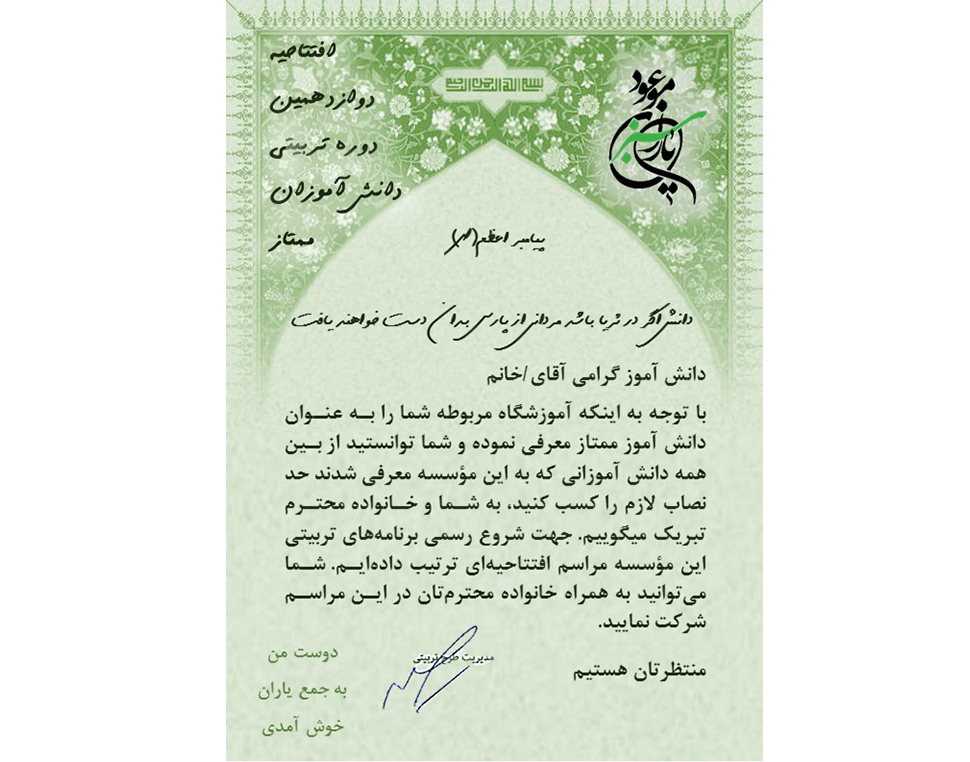 بسم الله الرحمن الرحیم
افتتاحیه
دوازدهمین
دوره تربیتی
دانش آموزان
ممتاز
یاران سبز موعود
پیامبر اعظم (ص)
دانش اگر در ثریا باشد مردانی از پارس بدان دست خواهند یافت
دانش آموز گرامی آقای/خانم
با توجه به اینکه آموزشگاه مربوطه شما را بـه عنـوان
دانش آموز ممتاز معرفی نموده و شما توانستید از بـین
همه دانش آموزانی که به این مؤسسه معرفی شدند حد
نصاب لازم را کسب کنید، به شـما و خـانواده محتـرم
تبریک میگوییم. جهت شروع رسمی برنامه‌های تربیتی
این مؤسسه مراسم افتتاحیه‌ای ترتیب داده‌ایـم. شـما
می‌توانید به همراه خانواده محترم‌تان در ایـن مراسـم
شرکت نمایید.
منتظرتان هستیم
مدیریت طرح تربیتی
دوست من
به جمع یاران
خوش آمدی